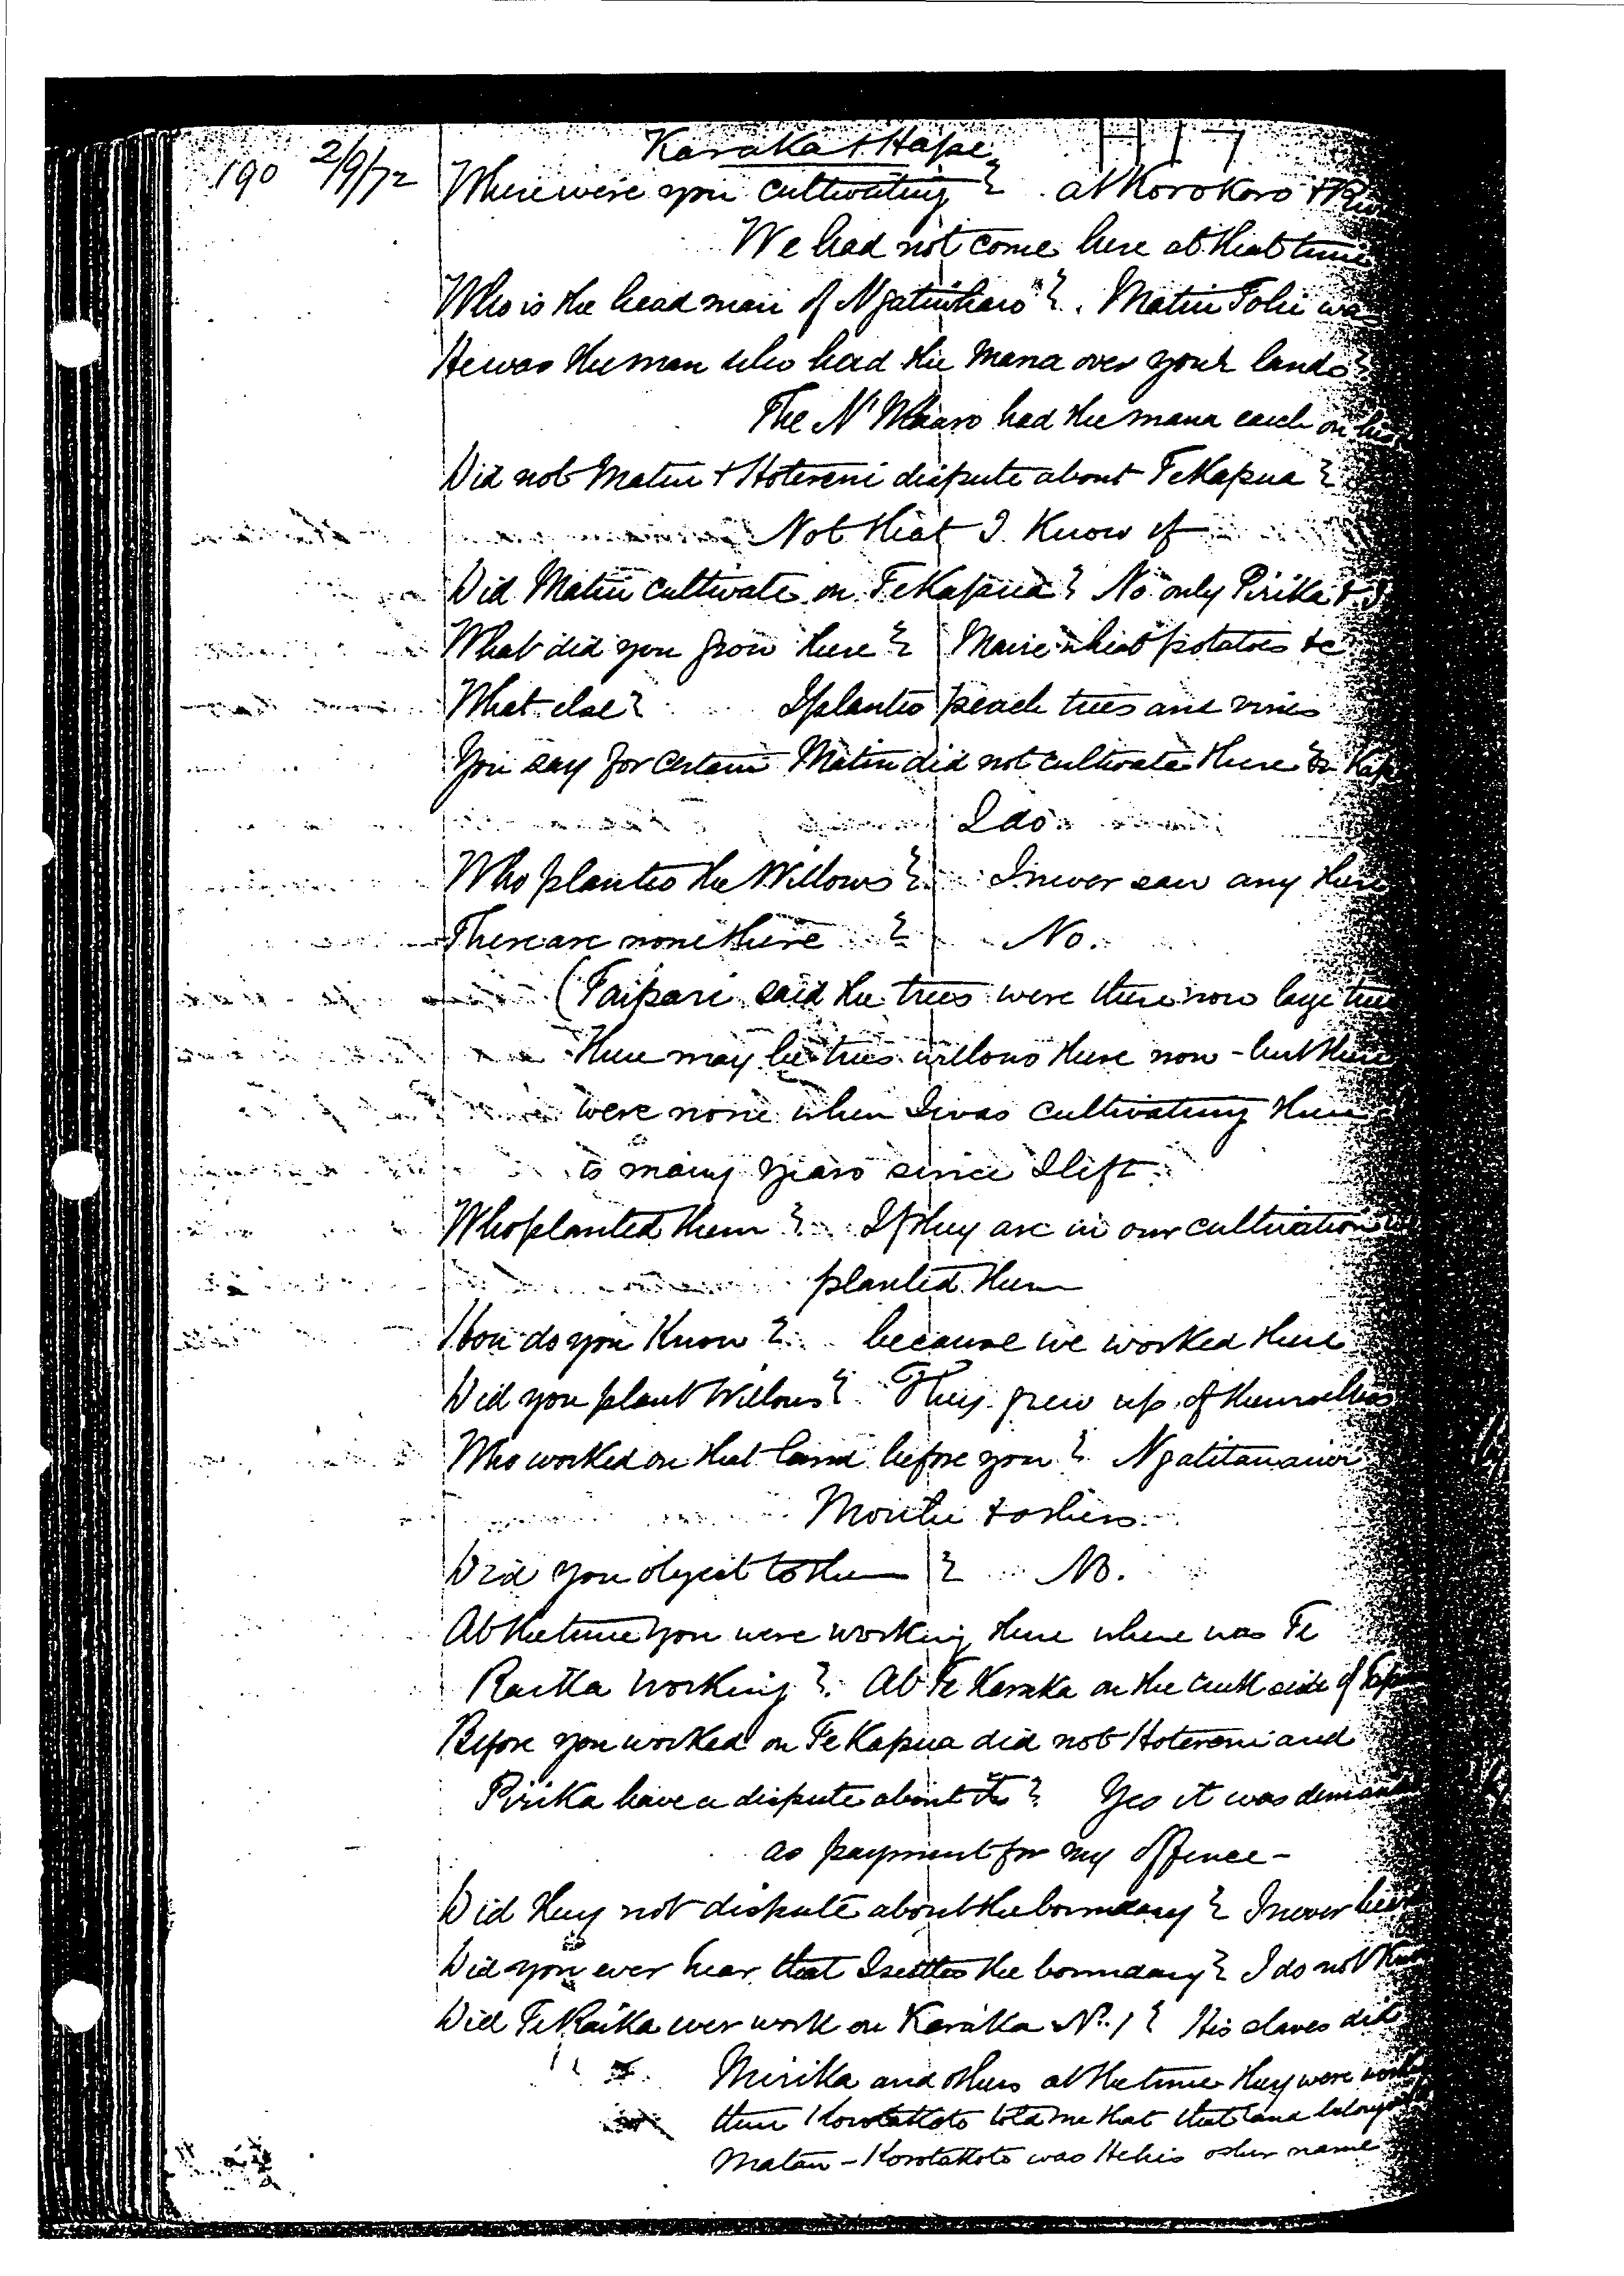 Karaka & Hape H 17
190 2/9/72 Where were you cultivating ? at Korokoro &
We had not come here at that time
Who is the head man of Ngatiwharo" ? Matiu Tohi was
He was the man who had the mana over your lands ?
The N' Wharo had the mana each on his
Did not Matiu & Hotereni dispute about Te Kapua ?
Not that I Know of
Did Matiu cultivate on Te Kapua ? No only Pirika & I
What did you grow there ? Maize wheat potatoes &c
What else ? I planted peach trees and vines
You say for certain Matiu did not cultivate there
I do
Who planted the Willows ? I never saw any there
There are none there ? No.
(Taipari said the trees were there now large trees
There may be trees willows there now - but there
were none when I was cultivating there
to many years since I left
Who planted them ? If they are in our cultivation
planted them
How do you Know ? because we worked there
Did you plant Willows ? They grew up of themselves
Who worked on that land before you ?
& others
Did you object to them ? No.
At the time you were working there where was Te
Raika working ? At Te Karaka on the side of
Before you worked on Te Kapua did not Hotereni and
Pirika have a dispute about it ? Yes it was
as payment for my offence -
Did they not dispute about the boundary ? I never
Did you ever hear that I settled the boundary ? I do not Know
Did Te Raika ever work on Karaka No. 1 ? His slaves did
Mirika and others at the time they were
there Korotakoto told me that that land
Matau - Korotakoto was other name